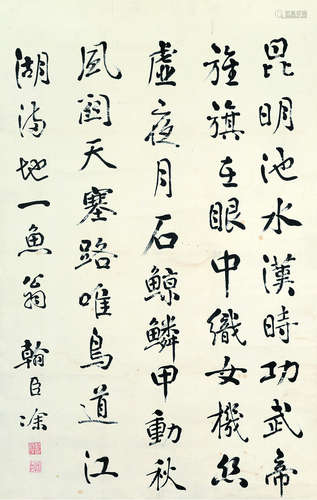 昆明池水漢時功武帝
旌旗在眼中織女機絲
虛夜月石鯨鱗甲動秋
風關天塞路唯鳥道江
湖滿地一魚翁 翰臣